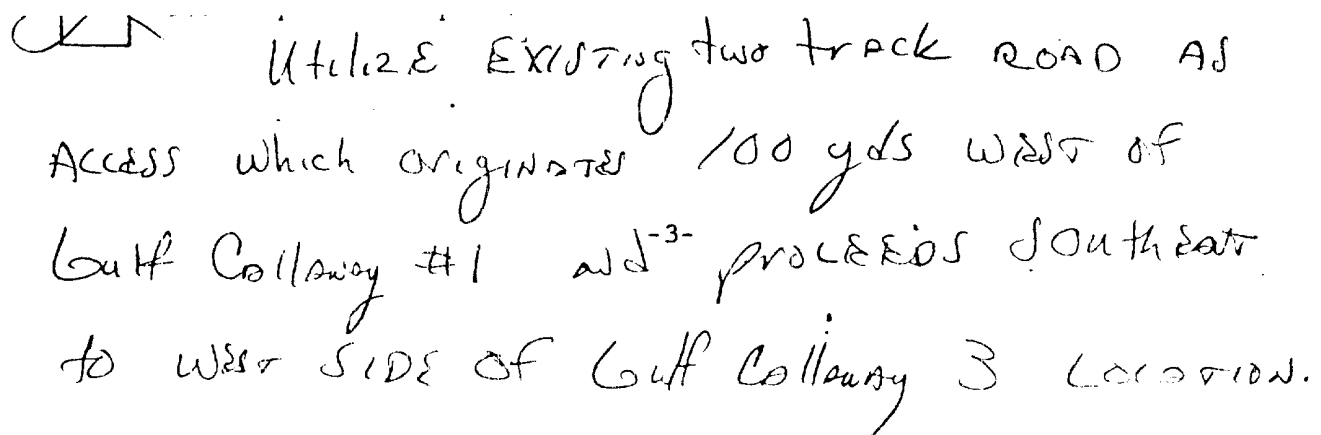 Utilize Existing two track ROAD AS
Access which originates 100 yds west of
Gulf Callaway #1 and -3- proceeds Southeast
to west SIDE of Gulf Callaway 3 Location.